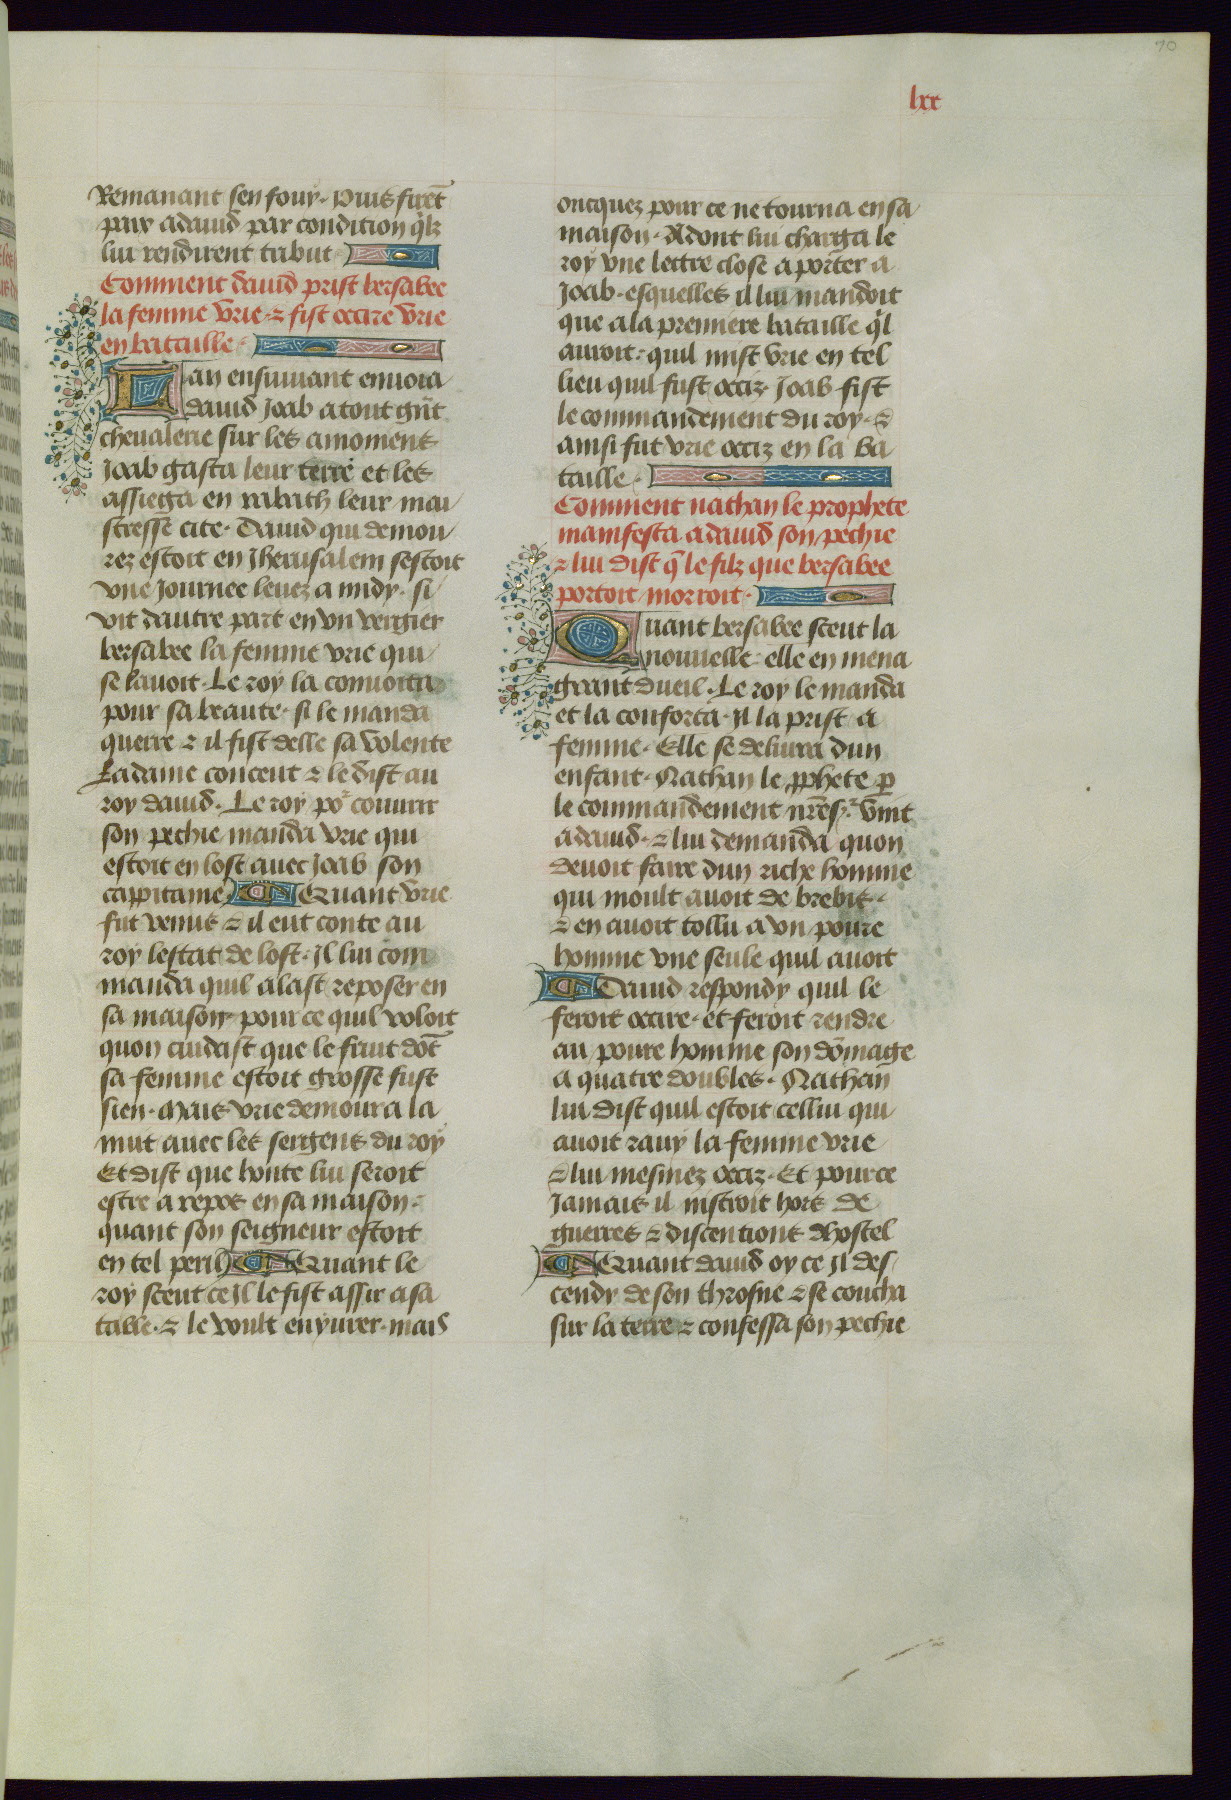 70
lxx
Remanant sen fouy. Puis firēt
paix a dauid par condition q̄lz
lui rendirent tribut
Comment dauid prist bersabee
la femme vrie. ⁊ fist occire vrie
en bataille
Lan ensuiuant enuoia
dauid Joab a tout gñt
cheualerie sur les amonens
Joab gasta leur terre et les
assiega en rabath leur mai
stresse cite. Dauid qui demou
rez estoit en Jherusalem sestoit
vne Journee leuez a midy. si
vit dautre part en vn vergier
bersabee la femme vrie qui
se lauoit. Le roy la conuoita
pour sa beaute. si le manda
querre ⁊ il fist delle sa volente
La dame conceut ⁊ le dist au
roy dauid. Le roy por couurir
son pechie manda vrie qui
estoit en lost auec Joab son
cappitaine Quant vrie
fut venus ⁊ il eut conte au
roy lestat de lost. Il lui com
manda quil alast reposer en
sa maison pour ce quil voloit
quon cuidast que le fruit dōt
sa femme estoit grosse fust
sien. Mais vrie demoura la
nuit auec les sergens du roy
Et dist que honte lui seroit
estre a repos en sa maison.
quant son seigneur estoit
en tel peril Quant le
roy sceut ce Il le fist assir a sa
table. ⁊ le voult enyurer. mais
oncquez pour ce ne tourna en sa
maison. Adont lui charga le
roy vne lettre close a porter a
Joab. esquelles il lui mandoit
que a la premiere bataille q̄l
auroit. quil mist vrie en tel
lieu quil fust occiz. Joab fist
le commandement du roy. ⁊
ainsi fut vrie occiz en la ba
taille.
Comment nathan le prophete
manifesta a dauid son pechie
⁊ lui dist q̄ le filz que bersabee
portoit morroit.
Quant bersabee sceut la
nouuelle elle en mena
grant dueil. Le roy le manda
et la conforta. Il la prist a
femme. Elle se deliura dun
enfant. Nathan le ꝓphete ꝑ
le commandement nr̄e sr. vint
a dauid. ⁊ lui demanda quon
deuoit faire dun riche homme
qui moult auoit de brebis.
⁊ en auoit tollu a vn poure
homme vne seule quil auoit
Dauid respondy quil le
feroit occire. et feroit rendre
au poure homme son dōmage
a quatre doubles. Nathan
lui dist quil estoit cellui qui
auoit rauy la femme vrie
⁊ lui mesmez occiz. Et pource
Jamais il nistroit hors de
guerres ⁊ discentions dhostel
Quant dauid oy ce Il des
cendy de son throsne ⁊ se coucha
sur la terre ⁊ confessa son pechie